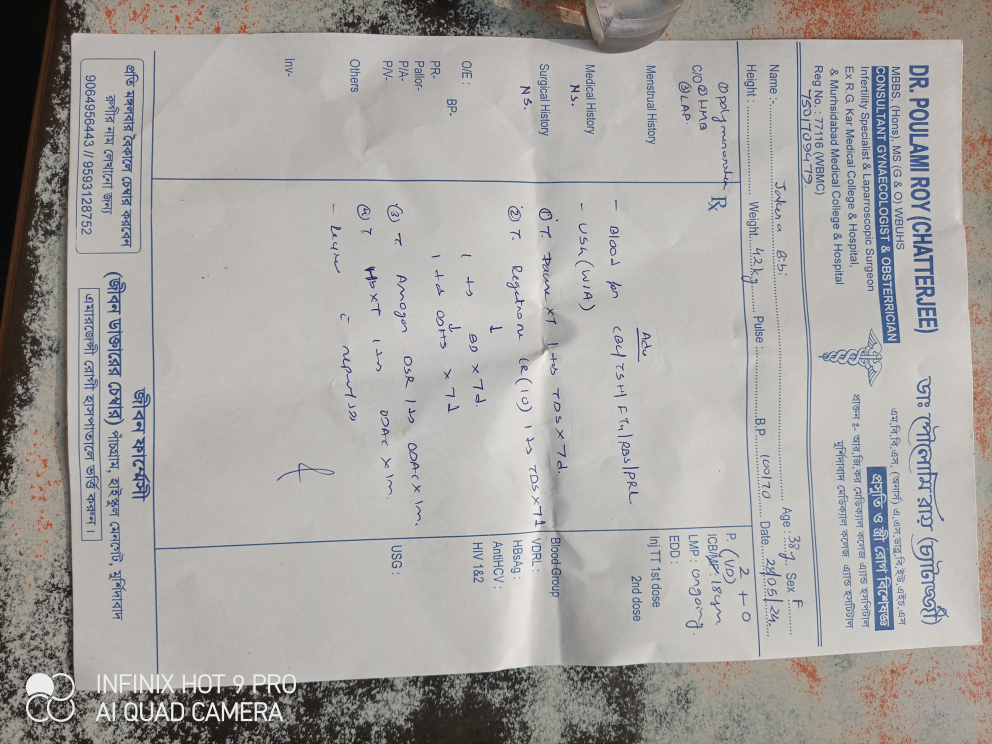 DR. POULAMI ROY (CHATTERJEE)
MBBS, (Hons), MS (G & O) WBUHS
CONSULTANT GYNAECOLOGIST & OBSTERRICIAN
Infertility Specialist & Laparroscopic Surgeon
Ex R.G. Kar Medical College & Hospital,
& Murhsidabad Medical College & Hospital
Reg No.: 77116 (WBMC)
7501709479
ডাঃ পৌলমি রায় (চ্যাটার্জ্জী)
এম.বি.বি.এস. (অনার্স) এ.এস.ডাব্লু.বি.ইউ.এইচ.এস
প্রসূতি ও স্ত্রী রোগ বিশেষজ্ঞ
প্রাক্তন ঃ- আর.জি.কর মেডিক্যাল কলেজ এ্যান্ড হসপিটাল
মুর্শিদাবাদ মেডিক্যাল কলেজ এ্যান্ড হসপিটাল
Name :- Bibi Age : 38y. Sex F
Height : Weight 42kg Pulse : B.P 100/70 Date 28/05/24
C/O ② HMB
③ LAP.
Menstrual History
Medical History
N.S.
Surgical History
N.S.
O/E :
BP-
PR-
Pallor-
P/A-
P/V-
Others
Inv-
Rx
Adv
- Blood for CBC/TSH/FT4/RBS/PRL
- USG (W/A)
① T. XT 1 tab TDS x 7d.
② T. Regestrone CR (10) 1 tab TDS x 7d
↓
1 tab BD x 7d.
↓
1 tab ODHS x 7d
③ T. DSR 1 tab ODAC x 1m.
④ T XT 1 tab ODAC x 1m.
P 2 + 0
(VD)
ICB/MP: 18yrs.
LMP: ongoing.
EDD :
Inj TT 1st dose
2nd dose
Blood Group
VDRL :
HBsAg :
AntiHCV :
HIV 1&2
USG :
প্রতি মঙ্গলবার বৈকালে চেম্বার করবেন
রুগীর নাম লেখানো জন্য
9064956443 // 9593128752
জীবন ফার্মেসী
(জীবন ডাক্তারের চেম্বার) পাঁচগ্রাম, হাইস্কুল মেনগেট, মুর্শিদাবাদ
এমারজেন্সী রোগী হাসপাতালে ভর্ত্তি করুন।
INFINIX HOT 9 PRO
AI QUAD CAMERA